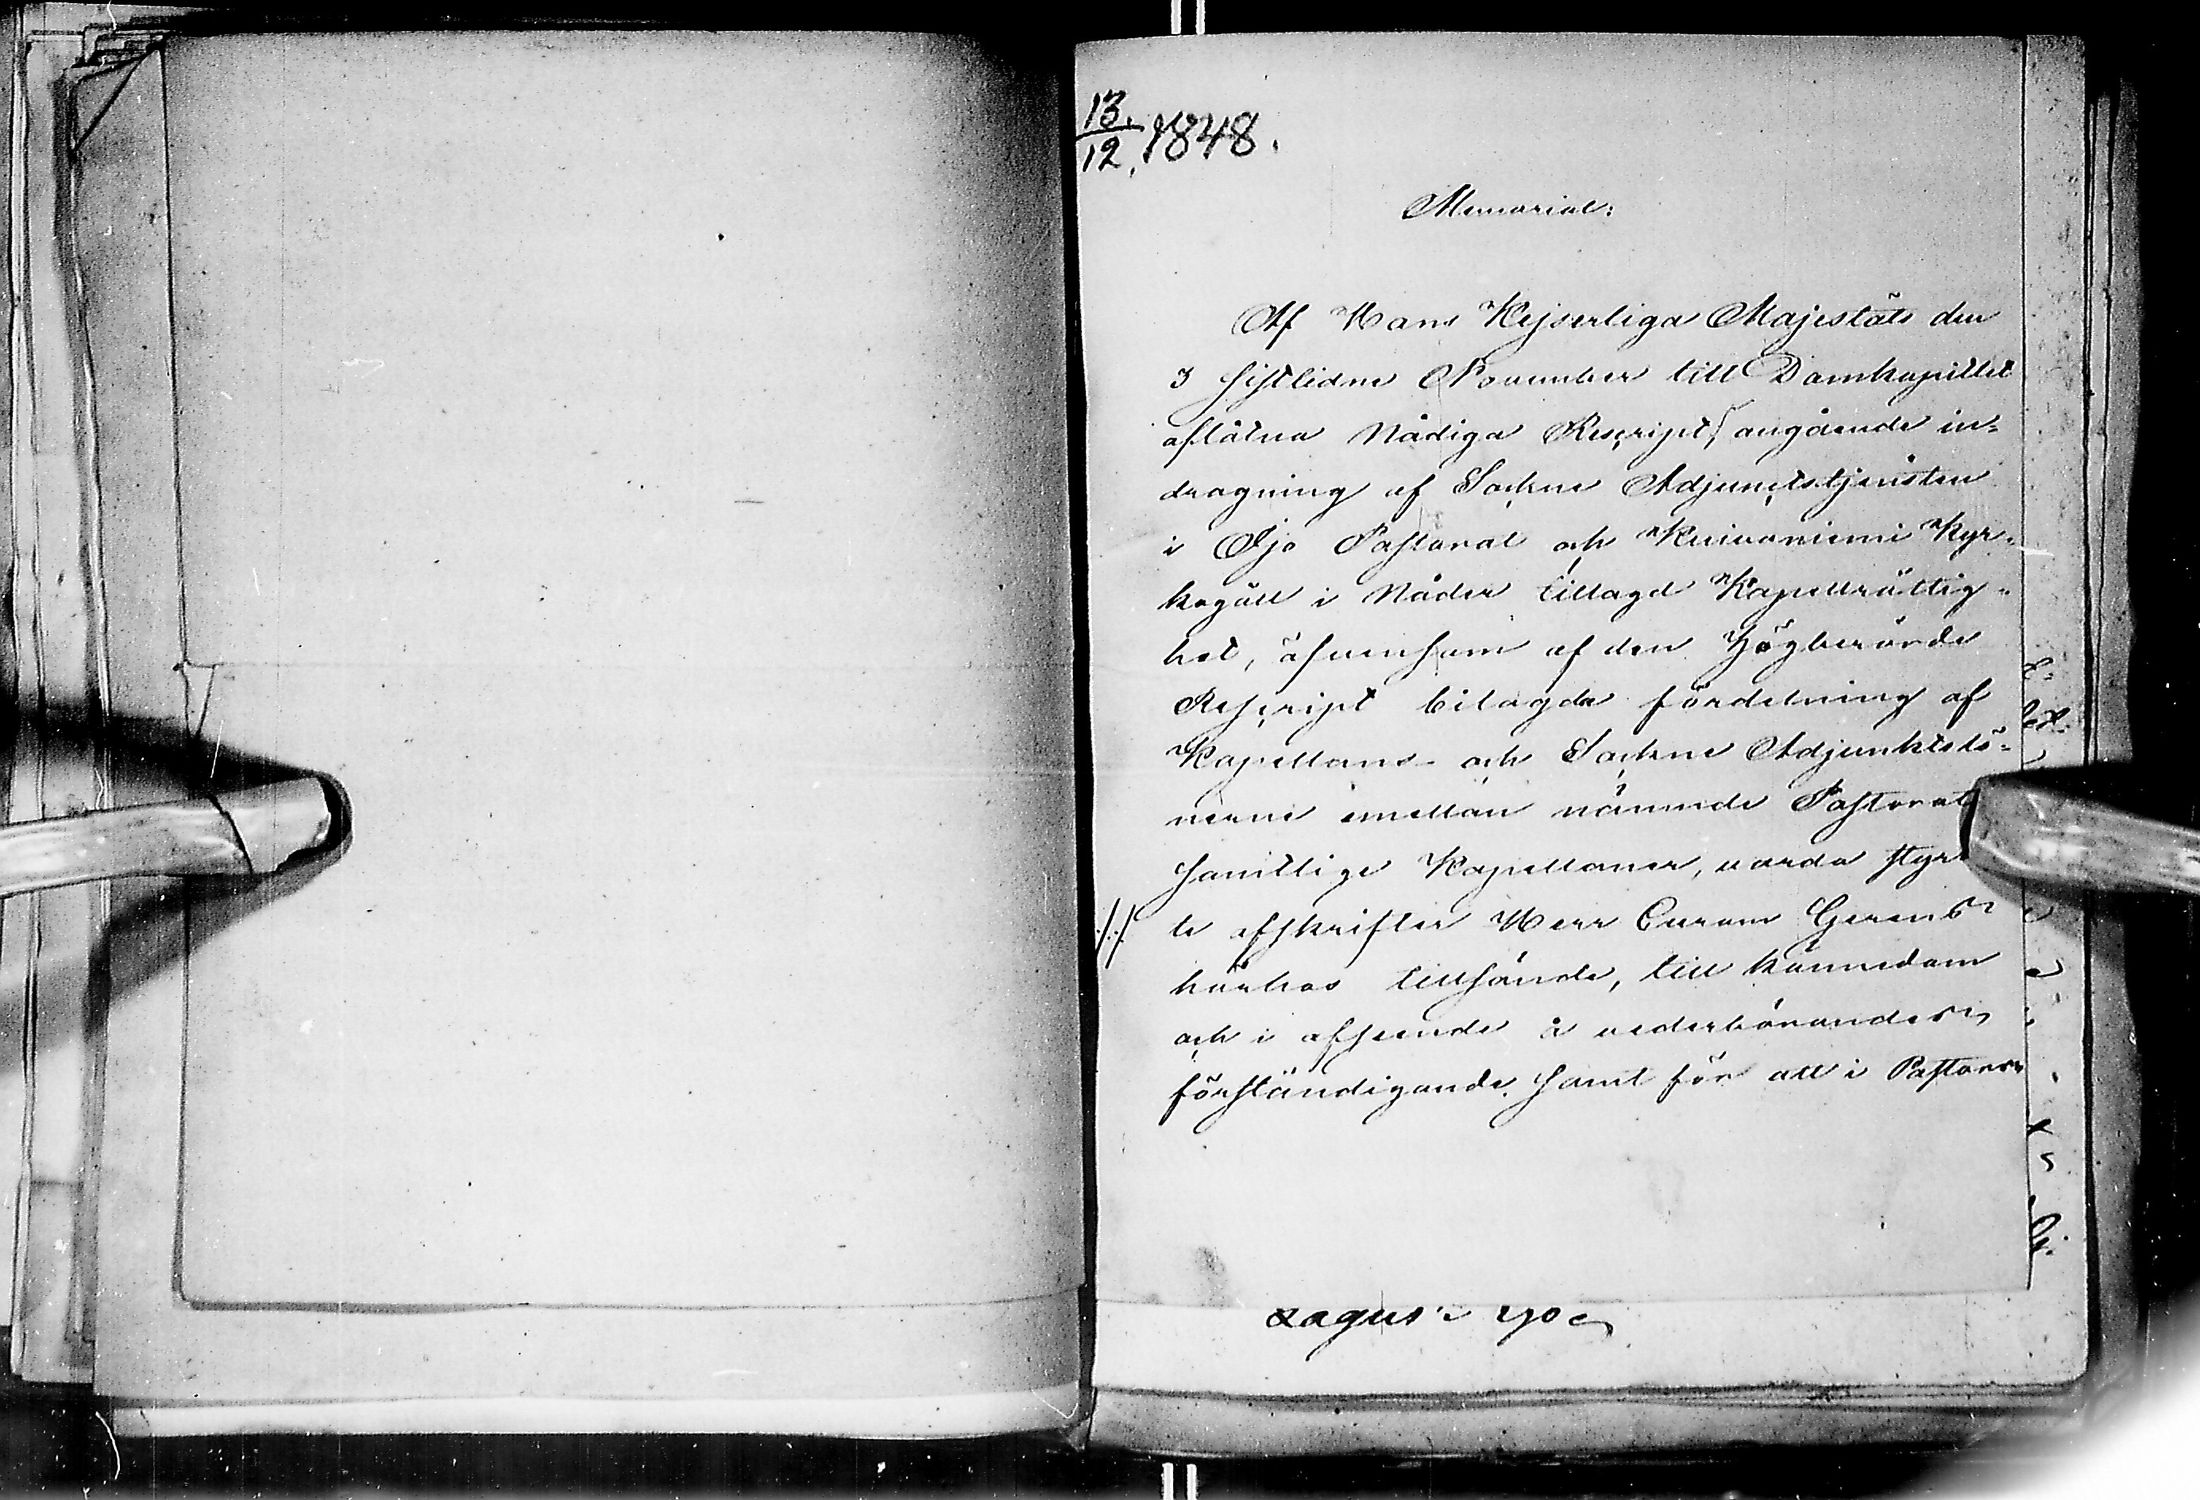 13.
12. 1848.
Memorial:
Af Hans Kejserliga Majestäts den
3 sistlidne November till Domkapitlet
aflåtna Nådiga Rescript, angående in-
dragning af Sockne Adjunctstjensten
i Ijo Pastorat och Kuivaniemi Kyr-
kogäll i Nåder tillagd Kapellrättig-
het, äfvensom af den Högberörde
Rescript bilagda fördelning af
Kapellans- och Sockne Adjunktslö-
nerne emellan nämnde Pastorat
samtlige Kapellaner, varda styrk
te afskrifter Herr Curam Gerens
härhos tillsände, till kännedom
och i afseende å vederbörandes
förständigande, samt för att i Pastors